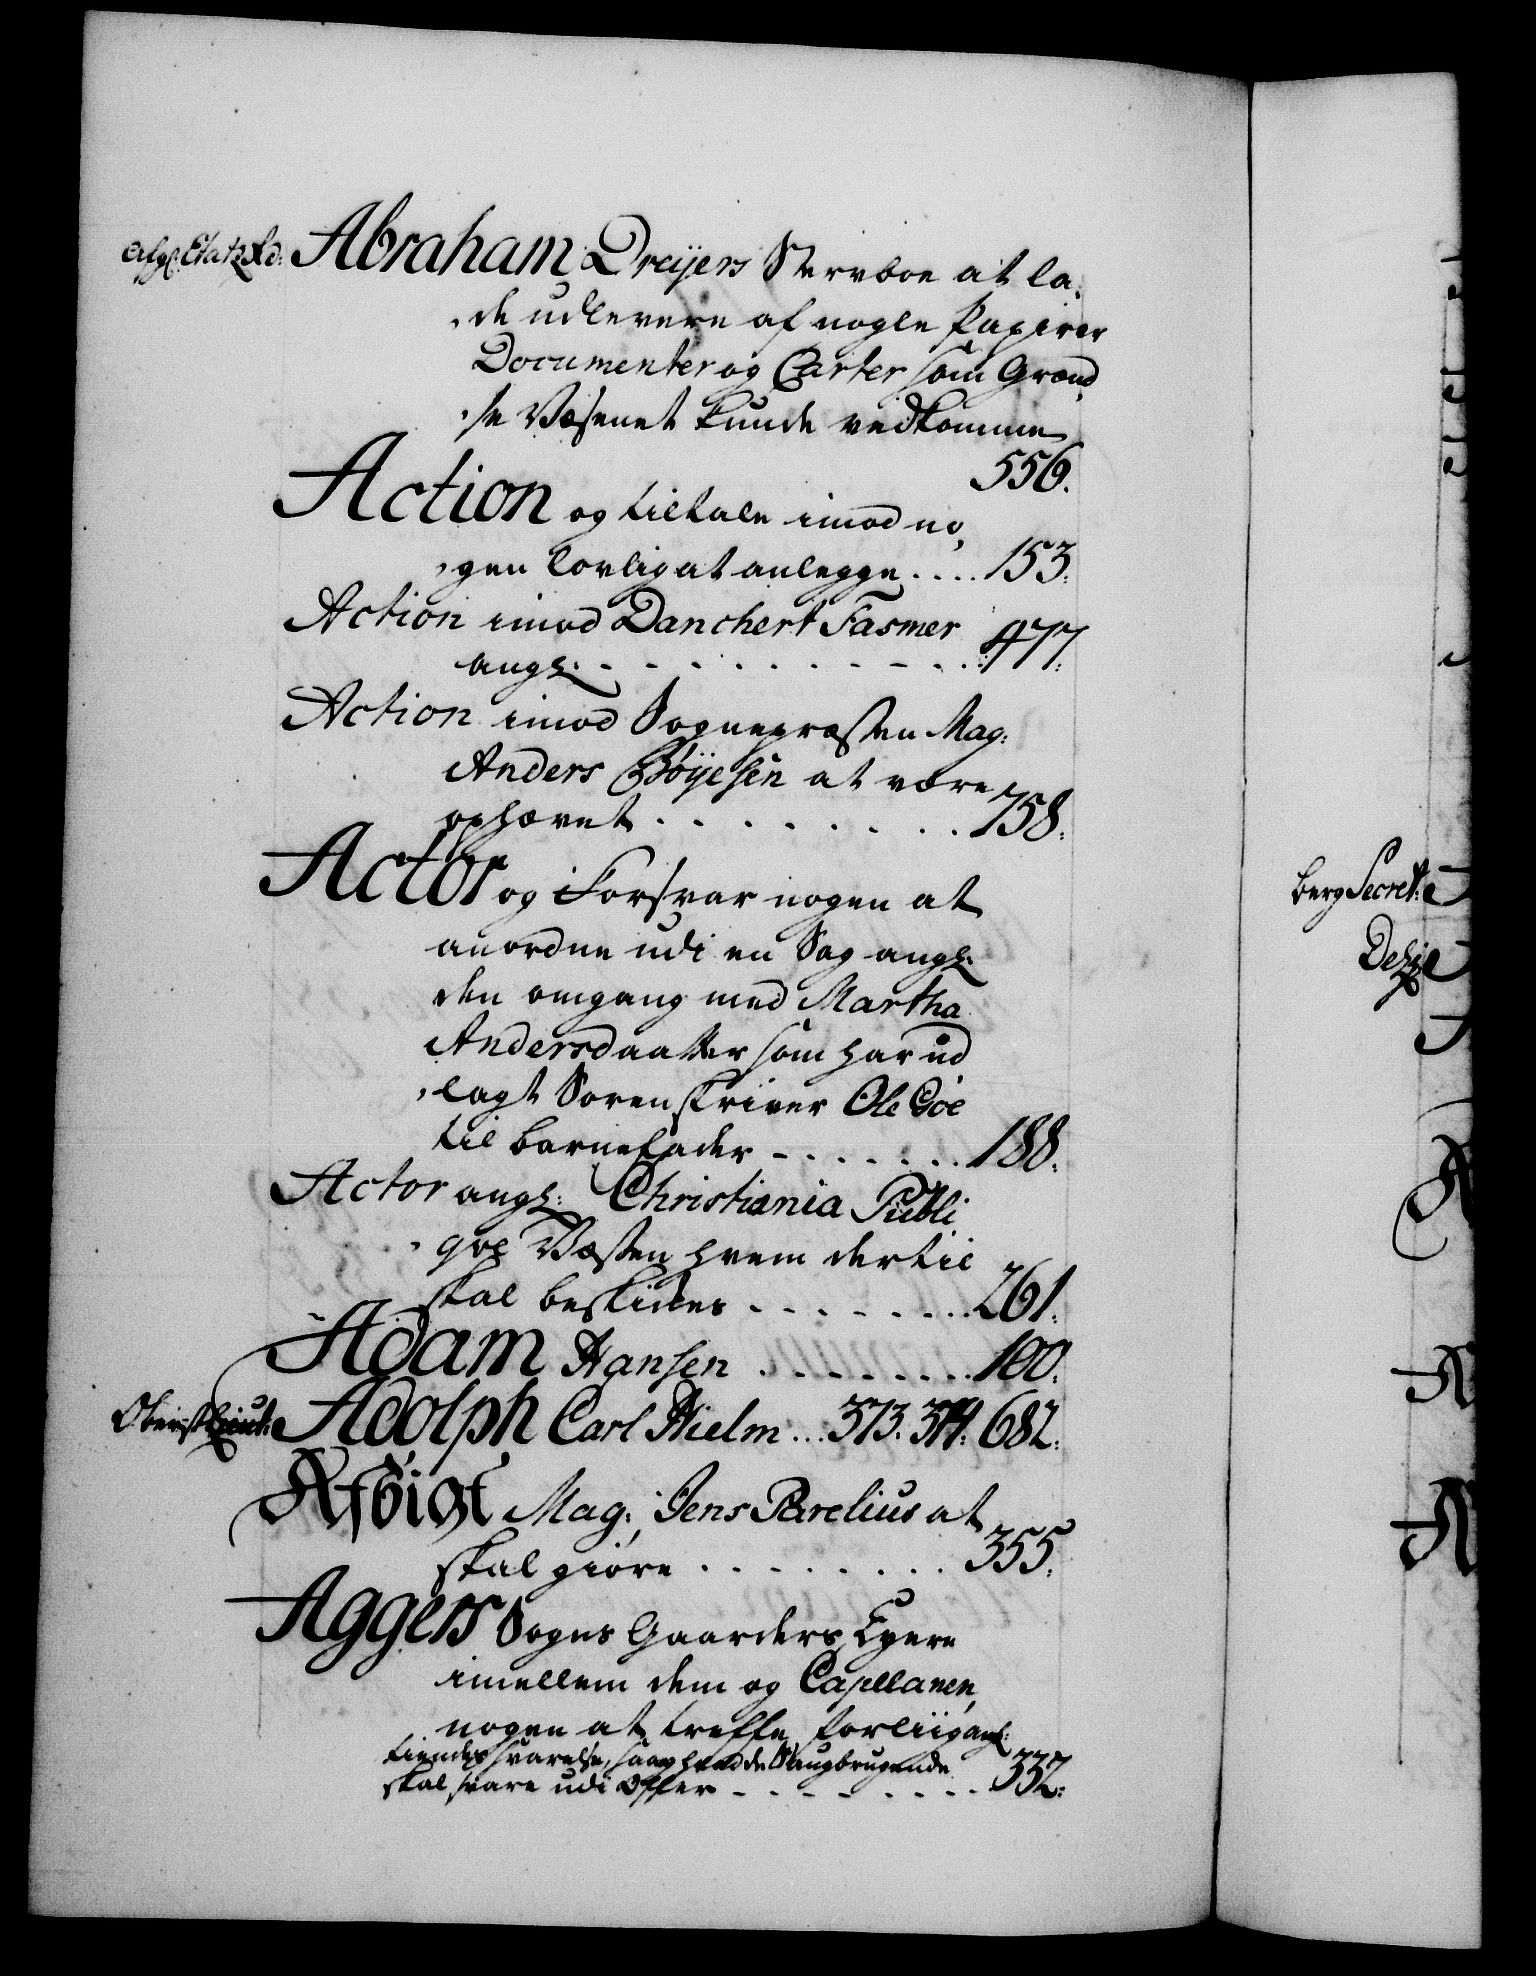 Afg: Etatz Rd: Abraham Dreÿers Sterboe at la,
,de udlevere af nogle Papirer
Documenter og Carter som Grænd,
,se Væsenet kunde vedkomme
556.
Action og tiltale imod no,
,gen lovlig at anlegge.... 153.
Action imod Danchert Fasmer
angl: - - - - - - - - - 477.
Action imod Sognepræsten Mag:
Anders Bøÿesen at være
ophævet . . . . . . . . 758.
Actor og Forsvar nogen at
anordne udi en Sag angl:
den omgang med Martha
Andersdaatter som har ud
,lagt Sorenskriver Ole Goe
til barnefader - . . . . . . 188.
Actor angl: Christiania Publi
,qve Væsten hvem dertil
skal beskikes - - - - - - 261.
Adam Hansen . . . . . . . . 100.
Oberst Lieut: Adolph Carl Hielm ... 373. 374. 682.
Afbigt Mag: Jens Parelius at
skal giöre . . . . . . . . 355.
Aggers Sogns Gaarders Eyere
imellem dem og Capellanen,
nogen at treffe forliig ang:
tiendes svarelse, saa og hvad de Saugbrugende
skal svare udi Offer - - - - - - - 332.
berg Secret: